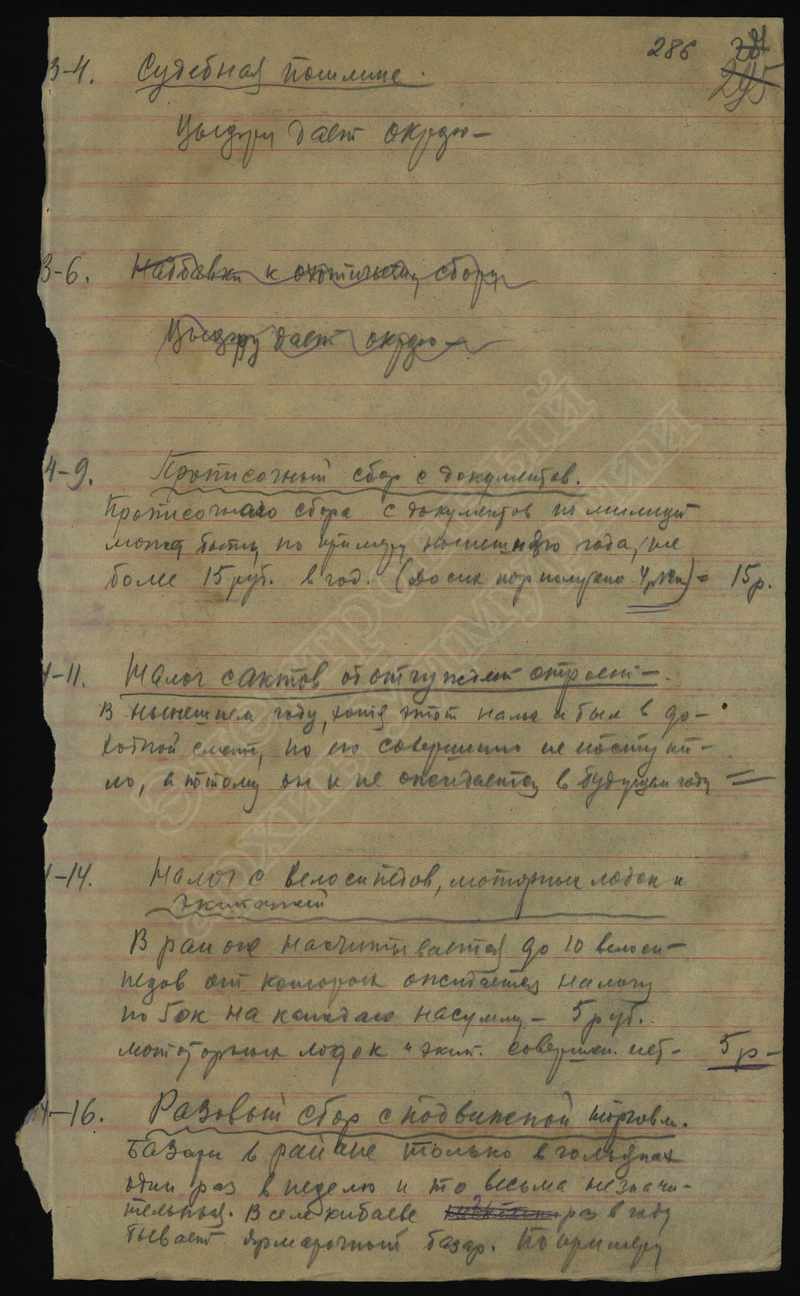 286
295
3-4. Судебная пошлина.
Цыфру дает окрфо—
3-6. Надбавки к охотничьему сбору
Цыфру дает окрфо—
4-9. Прописочный сбор с документов.
Прописочнаго сбора с документов из милиции
может быть по примеру нынешнего года, не
более 15 руб. в год. (до сих пор получено = 15р.
4-11. Налог с актов об отчужден строен—.
В нынешнем году, хотя этот налог и был в до—
ходной смете, но его совершенно не поступи—
ло, а потому он и не ожидается в будущем году =
4-14. Налог с велосипедов, моторных лодок и
экипажей
В районе насчитывается до 10 велоси—
педов от которых ожидается налогу
по 50к на каждаго на сумму — 5 руб.
мототорных лодок и экип. совершен. нет— 5р—
4-16. Разовый сбор с подвижной торговли.
Базары в районе только в
один раз в неделю и то весьма незначи—
тельныя. В селе раз в году
бывает ярмарочный базар. По примеру